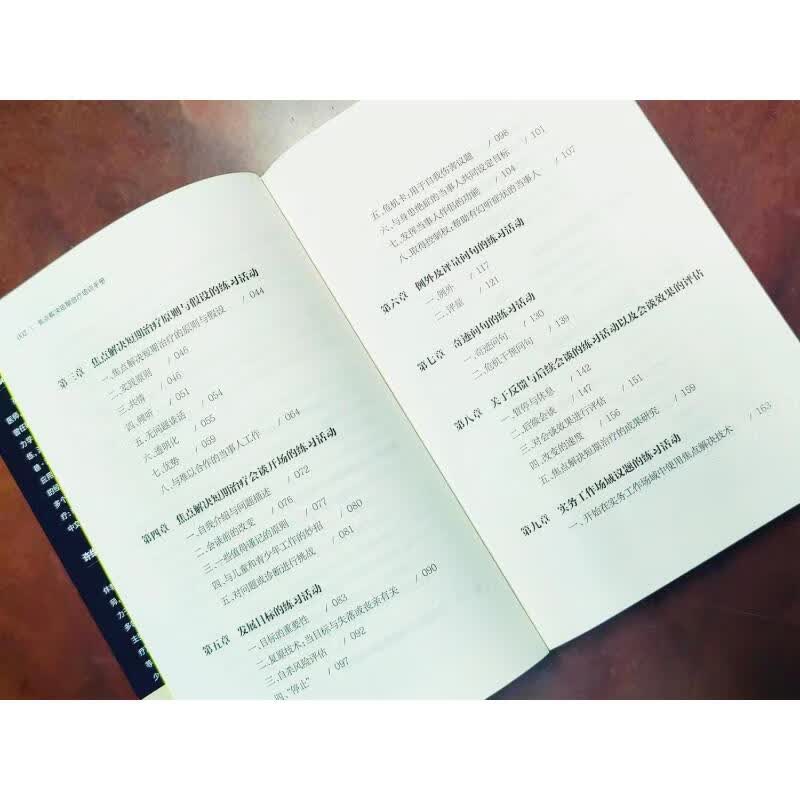 002 | 焦点解决短期治疗培训手册
第三章 焦点解决短期治疗原则与假设的练习活动
一、焦点解决短期治疗的原则与假设 / 044
二、实践原则 / 045
三、共情 / 046
四、倾听 / 051
五、无问题谈话 / 055
六、透明化 / 059
七、优势
八、与难以合作的当事人工作 / 064
第四章 焦点解决短期治疗会谈开场的练习活动
一、自我介绍与问题描述 / 072
二、会谈前的改变 / 076
三、一些值得谨记的原则 / 077
四、与儿童和青少年工作的妙招 / 080
五、对问题或诊断进行挑战 / 081
第五章 发展目标的练习活动
一、目标的重要性 / 083
二、复原技术:当目标与失落或丧亲有关 / 090
三、自杀风险评估 / 092
四、“停止” / 097
五、危机卡:用于自我伤害议题 / 098
六、与身患绝症的当事人共同设定目标 / 101
七、发挥当事人伴侣的功能 / 104
八、取得控制权:帮助有幻听症状的当事人 / 107
第六章 例外及评量问句的练习活动
一、例外 / 117
二、评量 / 121
第七章 奇迹问句的练习活动
一、奇迹问句 / 130
二、危机干预问句 / 139
第八章 关于反馈与后续会谈的练习活动以及会谈效果的评估
一、暂停与休息 / 142
二、后继会谈 / 147
三、对会谈效果进行评估 / 151
四、改变的速度 / 156
五、焦点解决短期治疗的成果研究 / 159
第九章 实务工作场域议题的练习活动
一、开始在实务工作场域中使用焦点解决技术 / 163